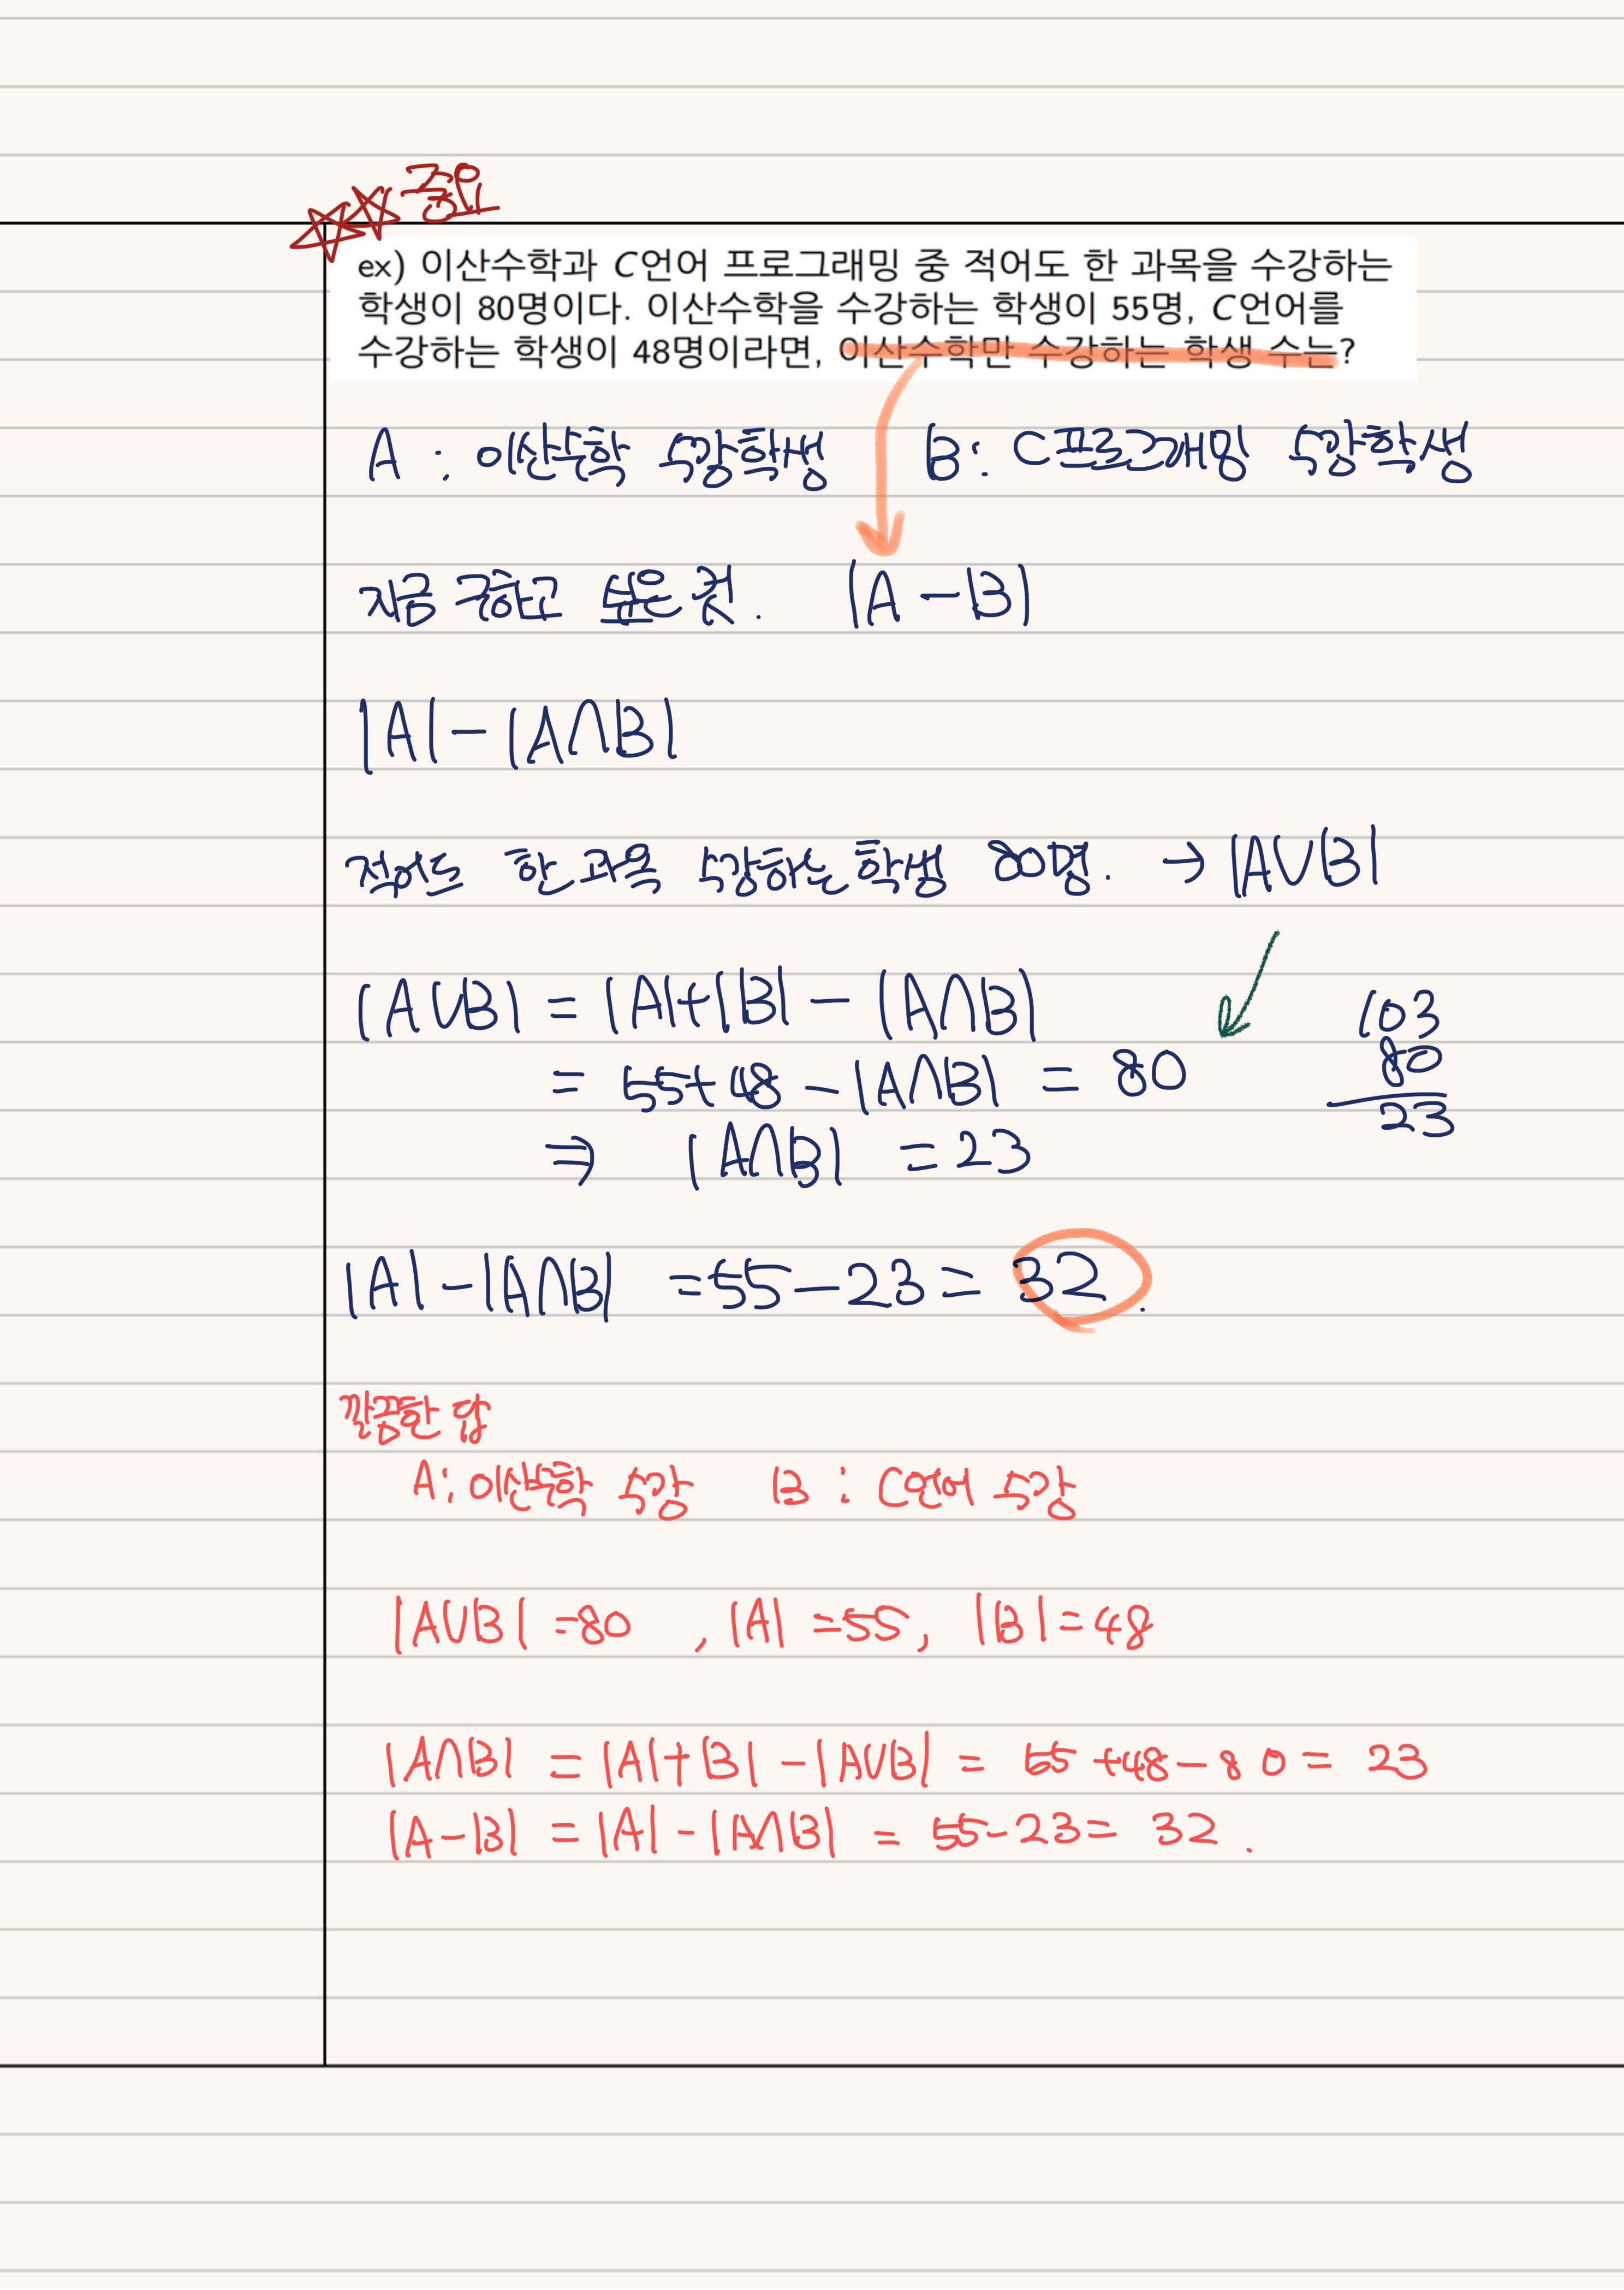 중요
ex) 이산수학과 C언어 프로그래밍 중 적어도 한 과목을 수강하는
학생이 80명이다. 이산수학을 수강하는 학생이 55명, C언어를
수강하는 학생이 48명이라면, 이산수학만 수강하는 학생 수는?
A : 이산수학 수강학생 B : C프로그래밍 수강학생
지금 구하고 싶은 것. |A - B|
|A| - |A∩B|
적어도 한 과목 수강하는 학생 80명. → |A∪B|
|A∪B| = |A|+|B| - |A∩B|
= 55+48 - |A∩B| = 80
⇒ |A∩B| = 23
103
80
23
|A| - |A∩B| = 55 - 23 = 32.
깔끔한 답
A : 이산수학 수강 B : C언어 수강
|A∪B| = 80 , |A| = 55, |B| = 48
|A∩B| = |A|+|B| - |A∪B| = 55+48-80 = 23
|A-B| = |A| - |A∩B| = 55-23 = 32.